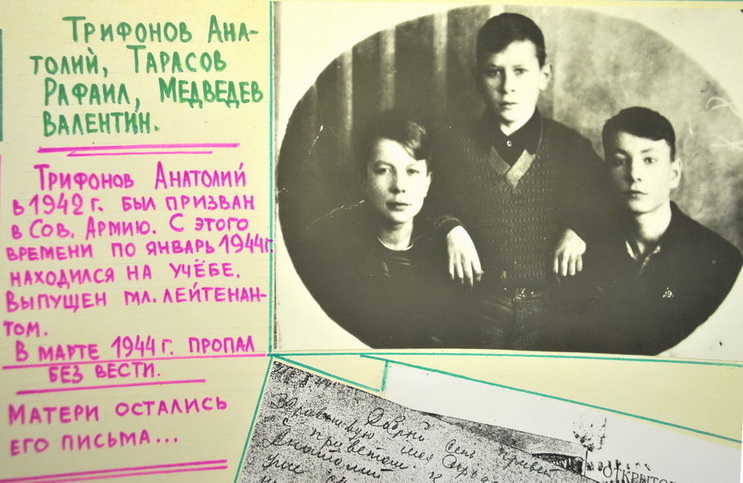 Трифонов Ана-
толий, Тарасов
Рафаил, Медведев
Валентин.
Трифонов Анатолий
в 1942 г. был призван
в Сов. Армию. С этого
времени по январь 1944г.
находился на учёбе.
Выпущен мл. лейтенан-
том.
В марте 1944 г. пропал
без вести.
Матери остались
его письма...
Добрый день
привет
с приветом к
Анатолий
Уже
ОТКРЫТО